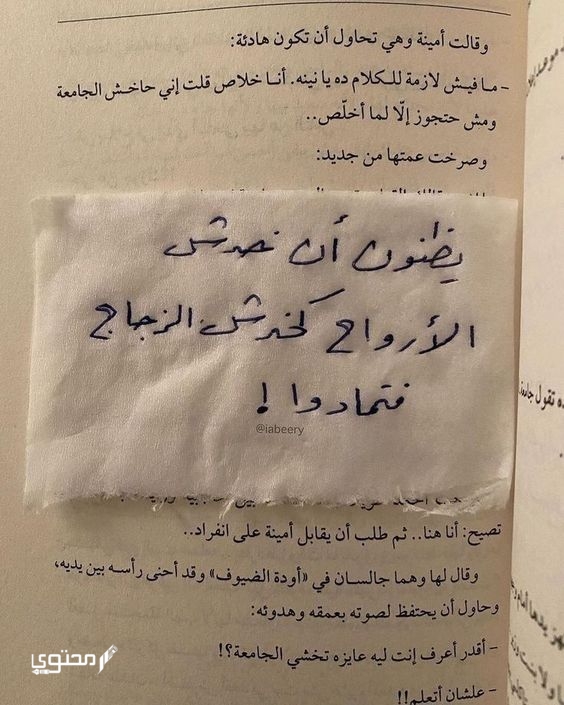 وقالت أمينة وهي تحاول أن تكون هادئة:
- مافيش لازمة للكلام ده يا نينه. أنا خلاص قلت إني حاخش الجامعة
ومش حتجوز إلّا لما أخلّص..
وصرخت عمتها من جديد:
يظنون أن خدش
الأرواح كخدش الزجاج
فتمادوا !
@iabeery
تصيح: أنا هنا.. ثم طلب أن يقابل أمينة على انفراد..
وقال لها وهما جالسان في «أودة الضيوف» وقد أحنى رأسه بين يديه،
وحاول أن يحتفظ لصوته بعمقه وهدوئه:
- أقدر أعرف إنت ليه عايزه تخشي الجامعة؟!
- علشان أتعلم!!
محتوى
ده تقول جامعة